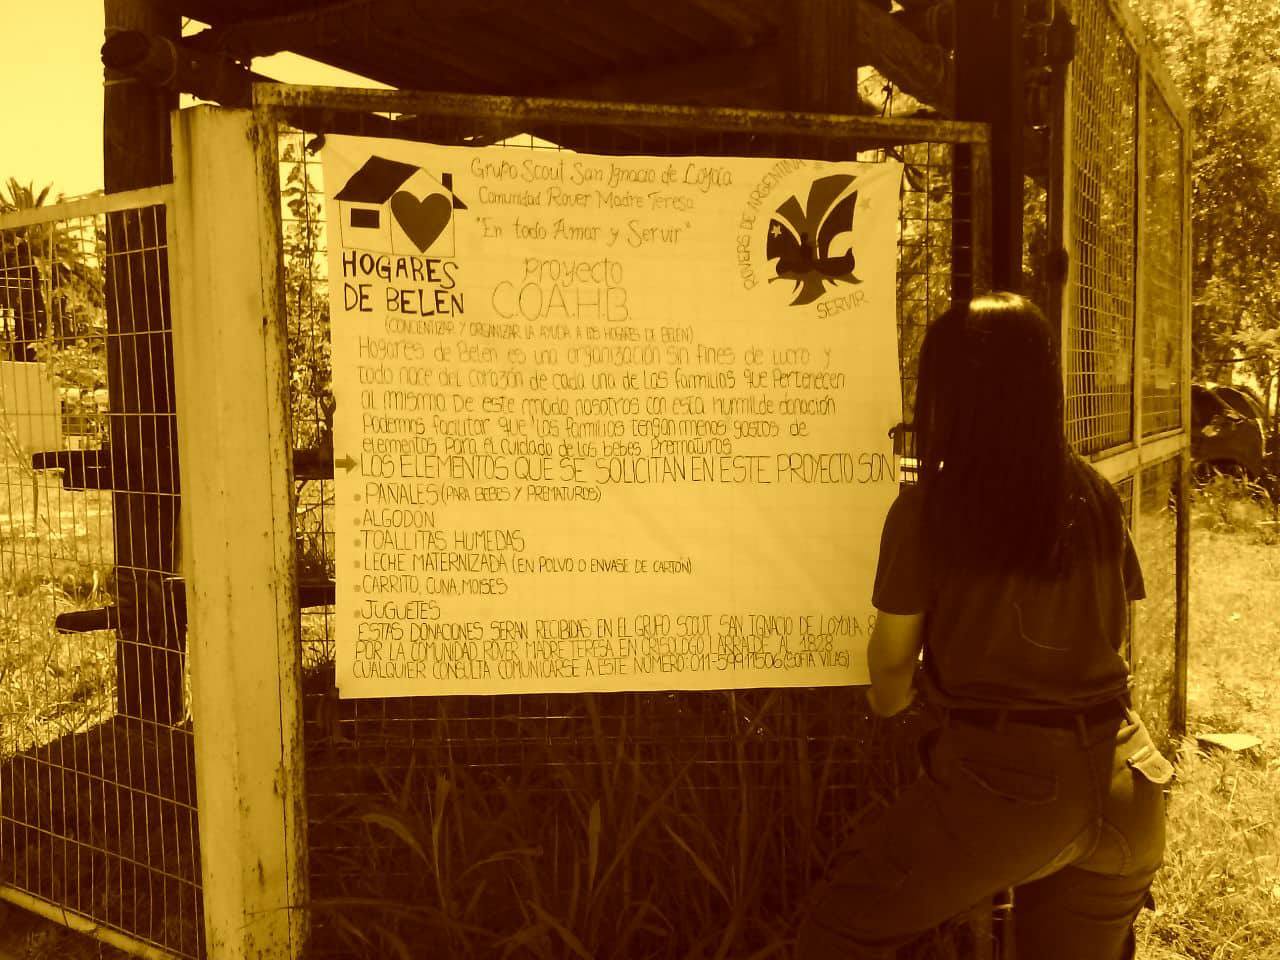 Grupo Scout San Ignacio de Loyola
Comunidad Rover Madre Teresa
"En todo Amar y Servir"
HOGARES
DE BELEN
ROVERS DE ARGENTINA
SERVIR
Proyecto
C.O.A.H.B.
(CONCIENTIZAR Y ORGANIZAR LA AYUDA A LOS HOGARES DE BELEN)
Hogares de Belen es una organización sin fines de lucro y
todo nace del corazón de cada una de las familias que Pertenecen
al mismo De este modo nosotros con esta humilde donación
Podemos facilitar que las familias tengan menos gastos de
elementos Para el cuidado de los bebes Prematuros
LOS ELEMENTOS QUE SE SOLICITAN EN ESTE PROYECTO SON
• PAÑALES (PARA BEBES Y PREMATUROS)
• ALGODON
• TOALLITAS HUMEDAS
• LECHE MATERNIZADA (EN POLVO O ENVASE DE CARTÓN)
• CARRITO, CUNA, MOISES
• JUGUETES
ESTAS DONACIONES SERAN RECIBIDAS EN EL GRUPO SCOUT SAN IGNACIO DE LOYOLA
POR LA COMUNIDAD ROVER MADRE TERESA EN CRISOLOGO LARRALDE AL 1828
CUALQUIER CONSULTA COMUNICARSE A ESTE NÚMERO: 011-59911506 (SOFIA VILAS)